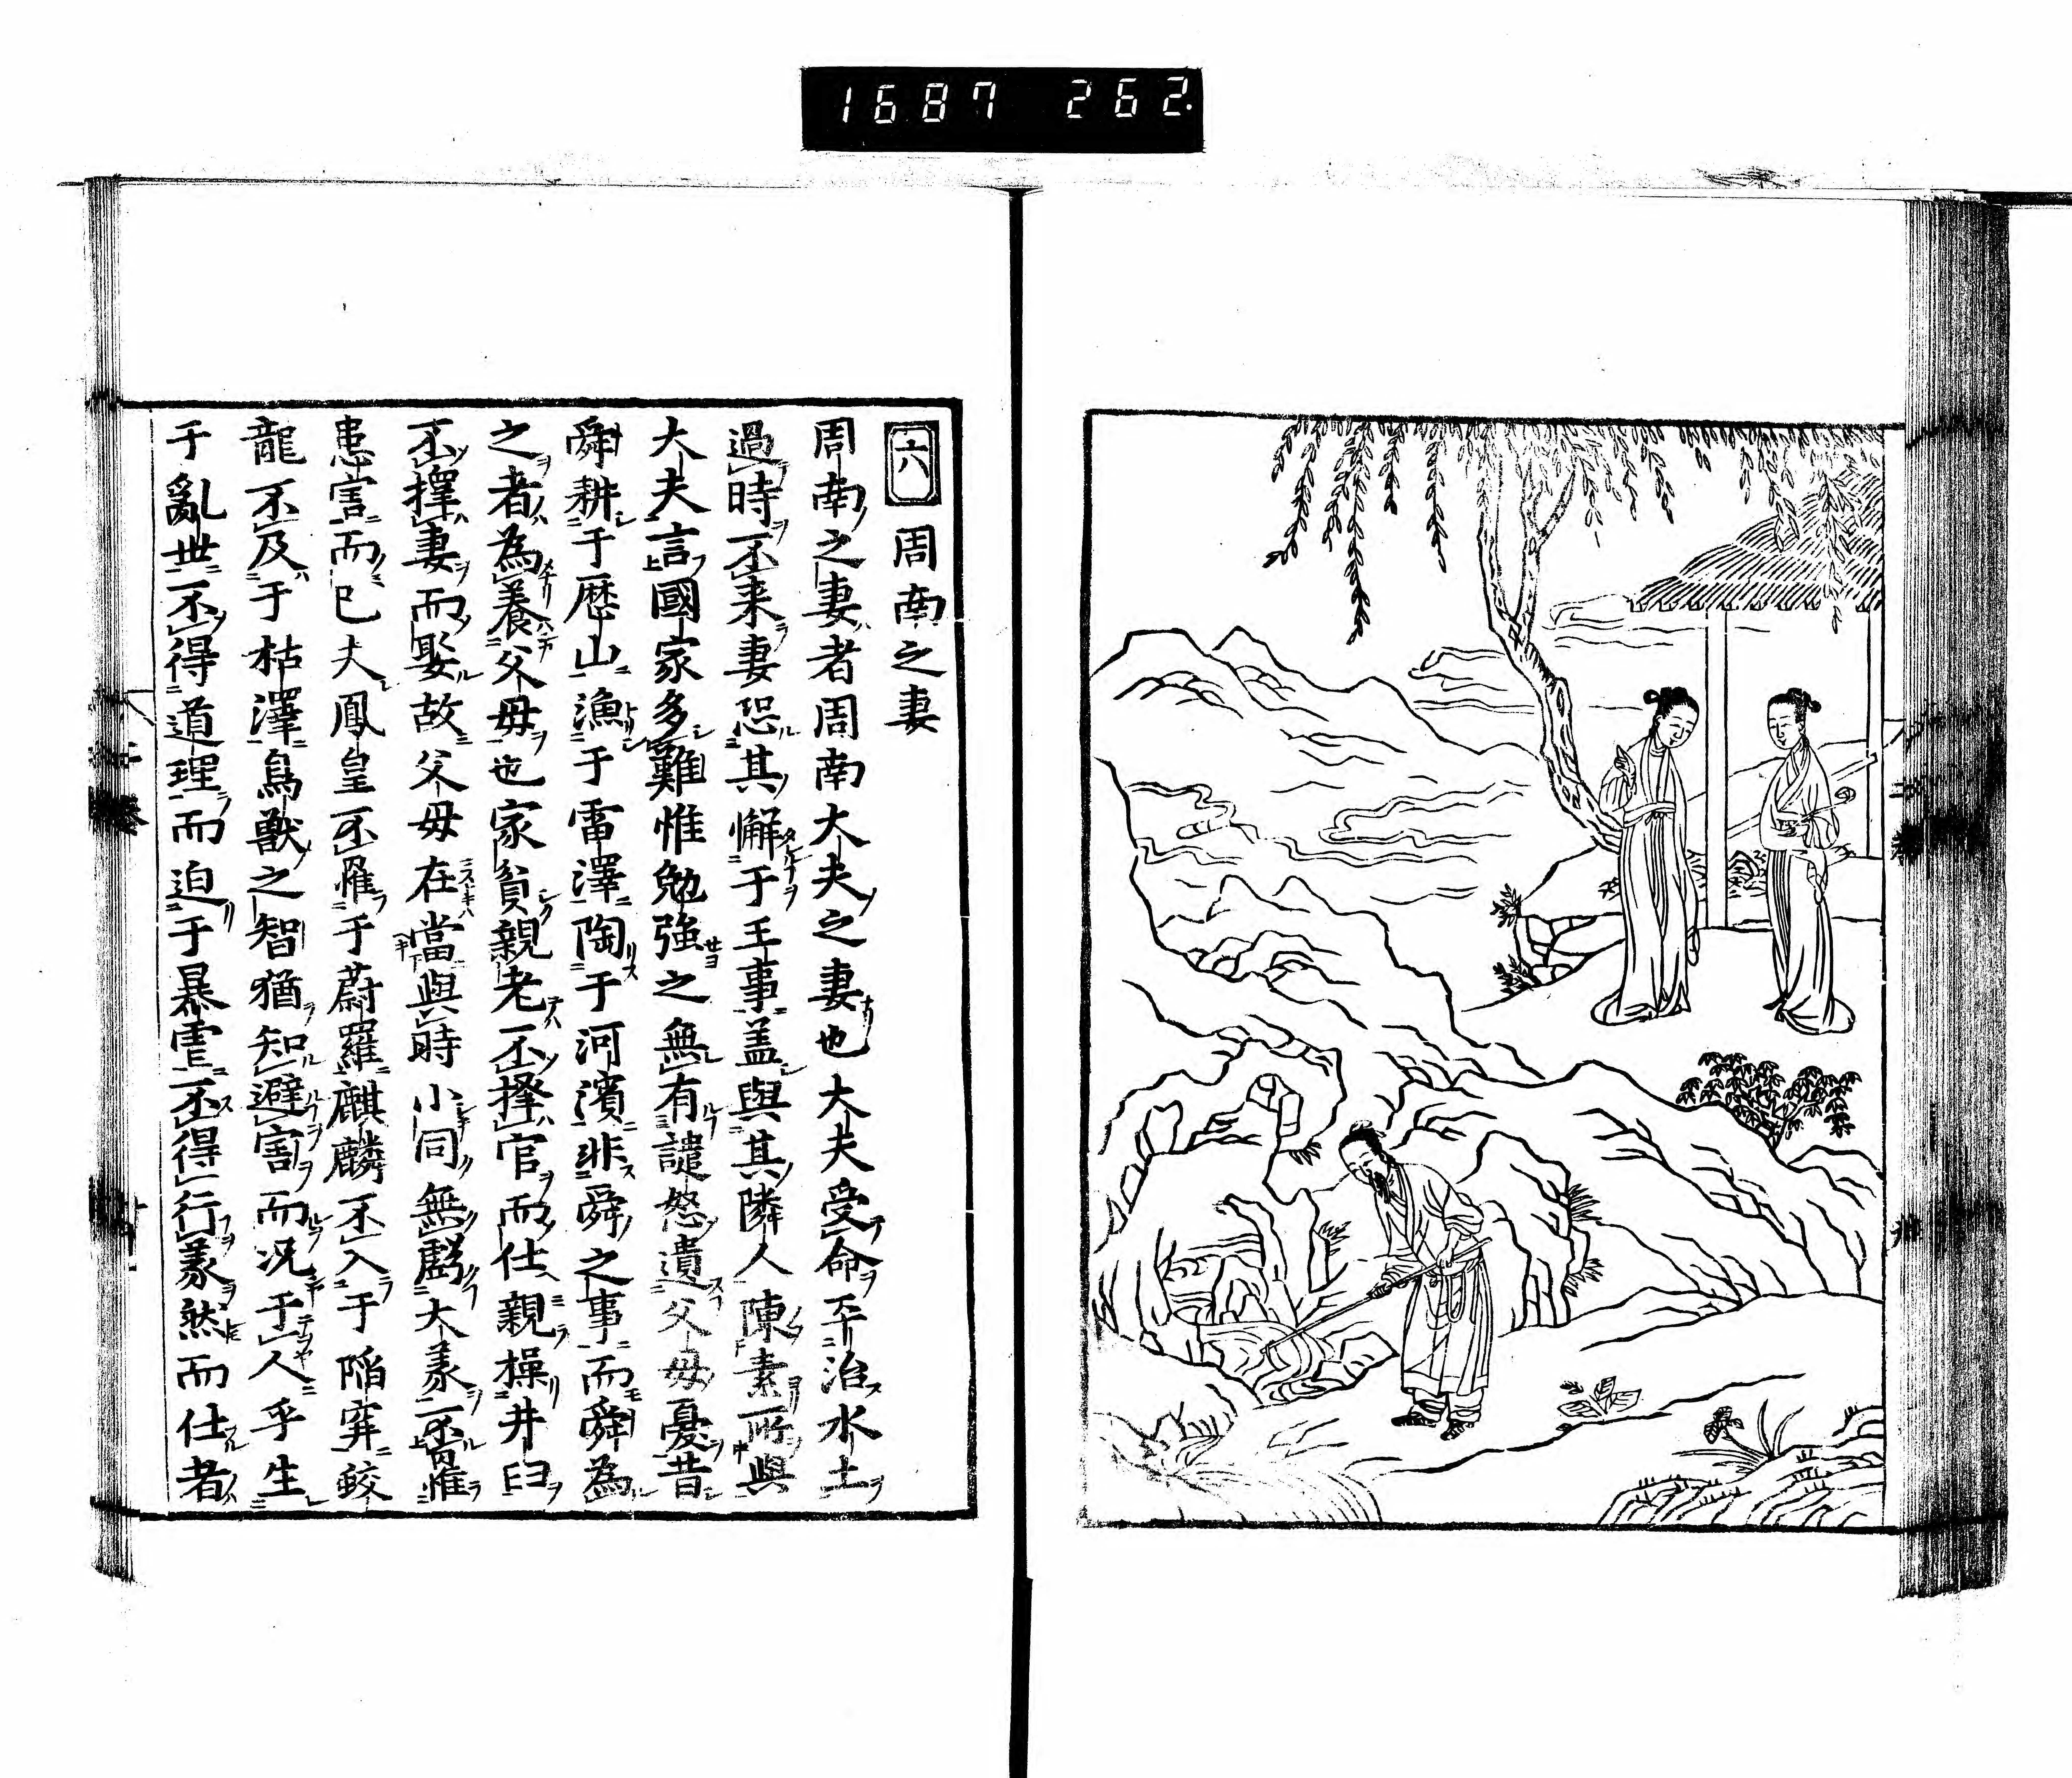 1687 262
六 周南之妻
周南之妻者周南大夫之妻也大夫受命平治水土
過時不来妻恐其懈于王事盖與其隣人陳素所與
大夫言國家多難惟勉強之無有譴怒遺父母憂昔
舜耕于歴山漁于雷澤陶于河濱非舜之事而舜為
之者為養父母也家貧親老不擇官而仕親操井臼
不擇妻而娶故父母在當與時小同無虧大義不罹
患害而已夫鳳皇不罹于蔚羅麒麟不入于陥穽蛟
龍不及于枯澤鳥獣之智猶知避害而况于人乎生
于亂世不得道理而迫于暴虐不得行義然而仕者